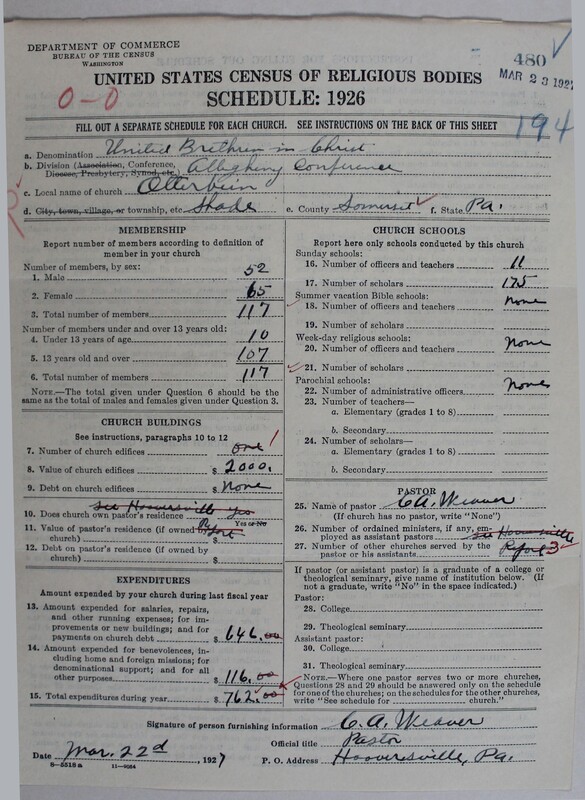 DEPARTMENT OF COMMERCE
BUREAU OF THE CENSUS
WASHINGTON
480
MAR 23 192
UNITED STATES CENSUS OF RELIGIOUS BODIES
0-0
SCHEDULE: 1926
FILL OUT A SEPARATE SCHEDULE FOR EACH CHURCH. SEE INSTRUCTIONS ON THE BACK OF THIS SHEET
194
a. Denomination United Brethren in Christ
b. Division (Association, Conference, Diocese, Presbytery, Synod, etc.) Allegheny Conference
c. Local name of church Otterbein
d. City, town, village, or township, etc. Shade e. County Somerset f. State Pa.
MEMBERSHIP
Report number of members according to definition of
member in your church
Number of members, by sex:
1. Male 52
2. Female 65
3. Total number of members 117
Number of members under and over 13 years old:
4. Under 13 years of age 10
5. 13 years old and over 107
6. Total number of members 117
NOTE.—The total given under Question 6 should be
the same as the total of males and females given under Question 3.
CHURCH BUILDINGS
See instructions, paragraphs 10 to 12
7. Number of church edifices one 1
8. Value of church edifices $ 2000.
9. Debt on church edifices $ None
see Hooversville Yes
10. Does church own pastor's residence Report
Yes or No
11. Value of pastor's residence (if owned by
church) $
12. Debt on pastor's residence (if owned by
church) $
EXPENDITURES
Amount expended by your church during last fiscal year
13. Amount expended for salaries, repairs,
and other running expenses; for im-
provements or new buildings; and for
payments on church debt $ 646.00
14. Amount expended for benevolences, in-
cluding home and foreign missions; for
denominational support; and for all
other purposes $ 116.00
15. Total expenditures during year $ 762.00
CHURCH SCHOOLS
Report here only schools conducted by this church
Sunday schools:
16. Number of officers and teachers 11
17. Number of scholars 175
Summer vacation Bible schools:
18. Number of officers and teachers None
19. Number of scholars
Week-day religious schools:
20. Number of officers and teachers None
21. Number of scholars
Parochial schools:
22. Number of administrative officers None
23. Number of teachers—
a. Elementary (grades 1 to 8)
b. Secondary
24. Number of scholars—
a. Elementary (grades 1 to 8)
b. Secondary
PASTOR
25. Name of pastor C. A. Weaver
(If church has no pastor, write "None")
26. Number of ordained ministers, if any, em-
ployed as assistant pastors see Hooversville
27. Number of other churches served by the
pastor or his assistants Report 3
If pastor (or assistant pastor) is a graduate of a college or
theological seminary, give name of institution below. (If
not a graduate, write "No" in the space indicated.)
Pastor:
28. College
29. Theological seminary
Assistant pastor:
30. College
31. Theological seminary
NOTE.—Where one pastor serves two or more churches,
Questions 28 and 29 should be answered only on the schedule
for one of the churches; on the schedules for the other churches,
write "See schedule for church."
Signature of person furnishing information C. A. Weaver
Official title Pastor
Date Mar. 22d, 1927 P. O. Address Hooversville, Pa.
8-5518a 11-9064